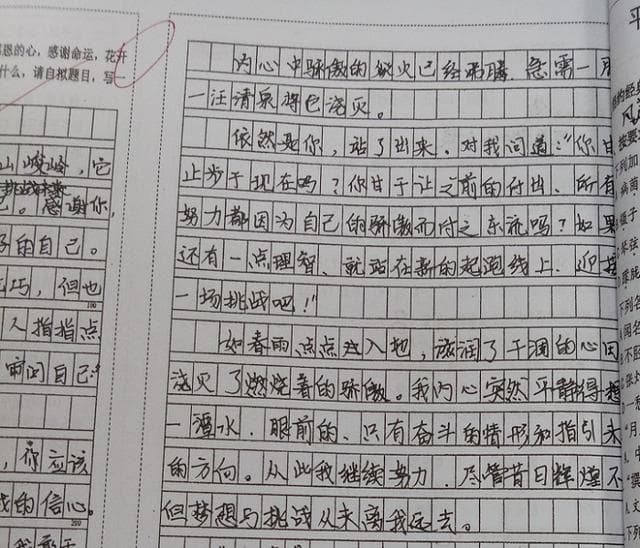 恩的心，感谢命运，花开
什么，请自拟题目，写一
山峻岭，它
挑战
。感谢你，
的自己。
巧，但也
100
人指指点
审问自己
，你应该
的信心。
200
内心中骄傲的火已经沸腾，急需一
一汪清泉将它浇灭。
依然是你，站了出来，对我问道："你甘
止步于现在吗？你甘于让之前的付出、所有
努力都因为自己的骄傲而付之东流吗？如果
还有一点理智、就站在新的起跑线上，迎接
一场挑战吧！"
如春雨点点注入地，滋润了干涸的心田
浇灭了燃烧着的骄傲。我内心突然平静得
一潭水，眼前的、只有奋斗的情形和指引未
的方向。从此我继续努力，尽管昔日辉煌不
但梦想与挑战从未离我远去。
平
下列加
下列名
不
一
"月
中